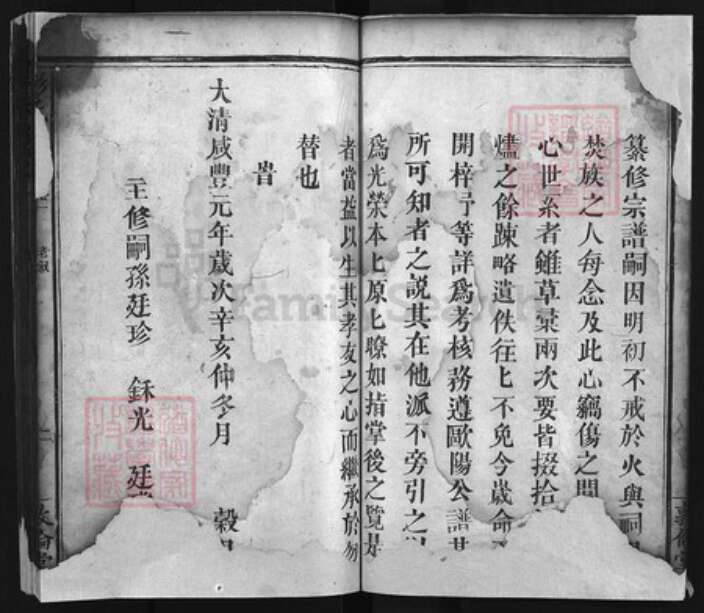 纂修宗譜嗣因明初不戒於火與嗣
焚族之人每念及此心竊傷之間
心世系者雖草稾兩次要皆掇拾
燼之餘踈略遺佚往匕不免今歲命
開梓予等詳爲考核務遵歐陽公譜
所可知者之説其在他派不旁引之
爲光榮本匕原匕瞭如指掌後之覽是
者當益以生其孝友之心而繼承於勿
替也
旹
大清咸豐元年歲次辛亥仲冬月 穀
主修嗣孫廷珍 銾光 廷
敦倫堂